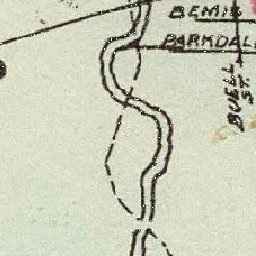 BEMIS
PARKDALE
BUELL
ST.